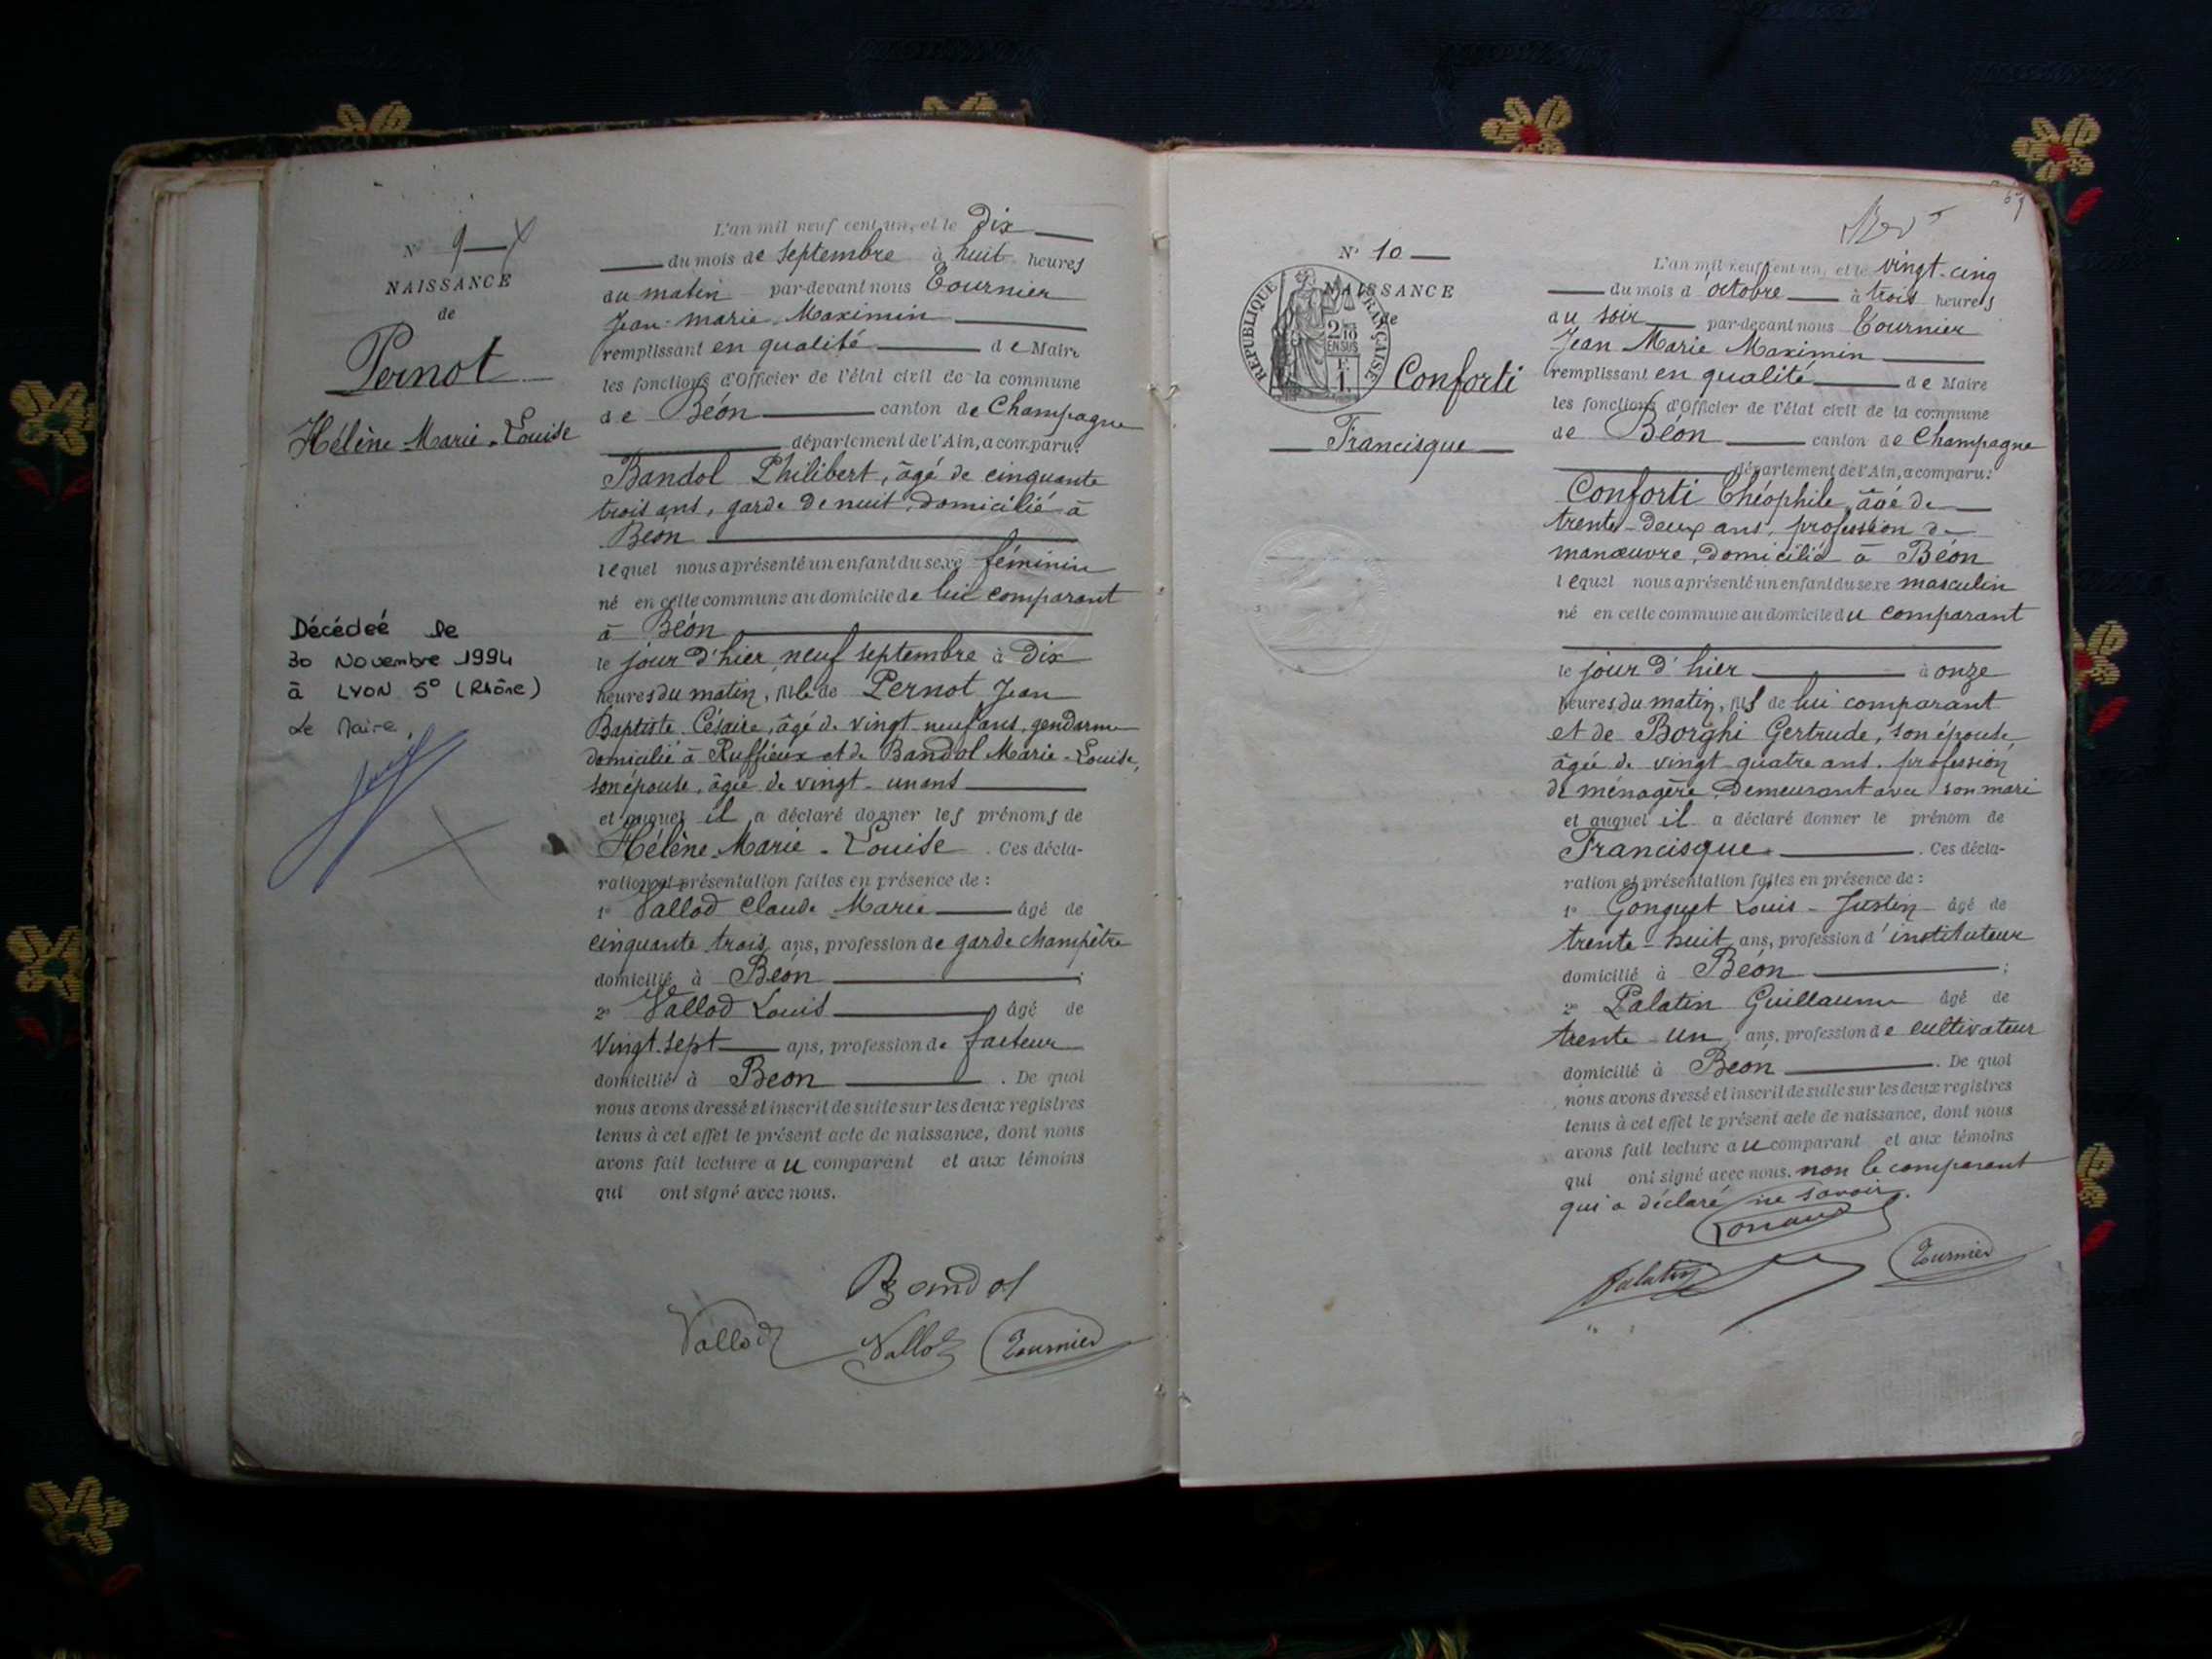 N° 9
NAISSANCE
de
Pernot
Hélène Marie-Louise
Décédeé le
30 Novembre 1994
à LYON 5° (Rhône)
Le Maire,
L'an mil neuf cent un, et le Dix
du mois de Septembre à huit heures
du matin par-devant nous Tournier
Jean-Marie Maximin
remplissant en qualité de Maire
les fonctions d'Officier de l'état civil de la commune
de Béon canton de Champagne
département de l'Ain, a comparu:
Bandol Philibert, âgé de cinquante
trois ans, garde de nuit, domicilié à
Béon
lequel nous a présenté un enfant du sexe féminin
né en cette commune au domicile de lui comparant
à Béon
le jour d'hier neuf septembre à Dix
heures du matin, fille de Pernot Jean
Baptiste Césaire, âgé de vingt-neuf ans, gendarme
domicilié à Ruffieux et de Bandol Marie-Louise,
son épouse, âgée de vingt-un ans
et auquel il a déclaré donner les prénoms de
Hélène-Marie-Louise. Ces décla-
ration et présentation faites en présence de :
1° Vallod Claude Marie âgé de
cinquante trois ans, profession de garde champêtre
domicilié à Béon ;
2° Vallod Louis âgé de
vingt-sept ans, profession de facteur
domicilié à Béon . De quoi
nous avons dressé et inscrit de suite sur les deux registres
tenus à cet effet le présent acte de naissance, dont nous
avons fait lecture au comparant et aux témoins
qui ont signé avec nous.
Bandol
Vallod Vallod Tournier
N° 10
NAISSANCE
de
RÉPUBLIQUE FRANÇAISE
2/10
EN SUS
F.
1
Conforti
Francisque
L'an mil neuf cent un, et le vingt-cinq
du mois d'octobre à trois heures
du soir par-devant nous Tournier
Jean Marie Maximin
remplissant en qualité de Maire
les fonctions d'Officier de l'état civil de la commune
de Béon canton de Champagne
département de l'Ain, a comparu:
Conforti Théophile, âgé de
trente-deux ans, profession de
manœuvre, domicilié à Béon
lequel nous a présenté un enfant du sexe masculin
né en cette commune au domicile du comparant
le jour d'hier à onze
heures du matin, fils de lui comparant
et de Borghi Gertrude, son épouse
âgée de vingt quatre ans, profession
de ménagère, demeurant avec son mari
et auquel il a déclaré donner le prénom de
Francisque . Ces décla-
ration et présentation faites en présence de :
1° Gonguet Louis-Justin âgé de
trente-huit ans, profession d'instituteur
domicilié à Béon ;
2° Palatin Guillaume âgé de
trente-un ans, profession de cultivateur
domicilié à Béon . De quoi
nous avons dressé et inscrit de suite sur les deux registres
tenus à cet effet le présent acte de naissance, dont nous
avons fait lecture au comparant et aux témoins
qui ont signé avec nous, non le comparant
qui a déclaré ne savoir.
Palatin Tournier